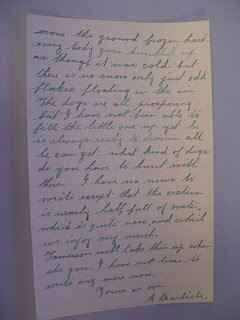 snow the ground frozen hard
every body goes bundled up
as though it was cold. but
there is no snow only just odd
flakes floating in the air
The dogs are all prospering
but I have not bin able to
fill the little one up yet he
is always ready to devour all
he can get. what kind of dogs
do you have to hunt with
there. I have no news to
write except that the cistern
is nearly half full of water,
which is quite new, and which
we injoy very much.
Jameson will take this up when
she goes. I have not time to
write any more now.
Yours as ever
A Carlisle.